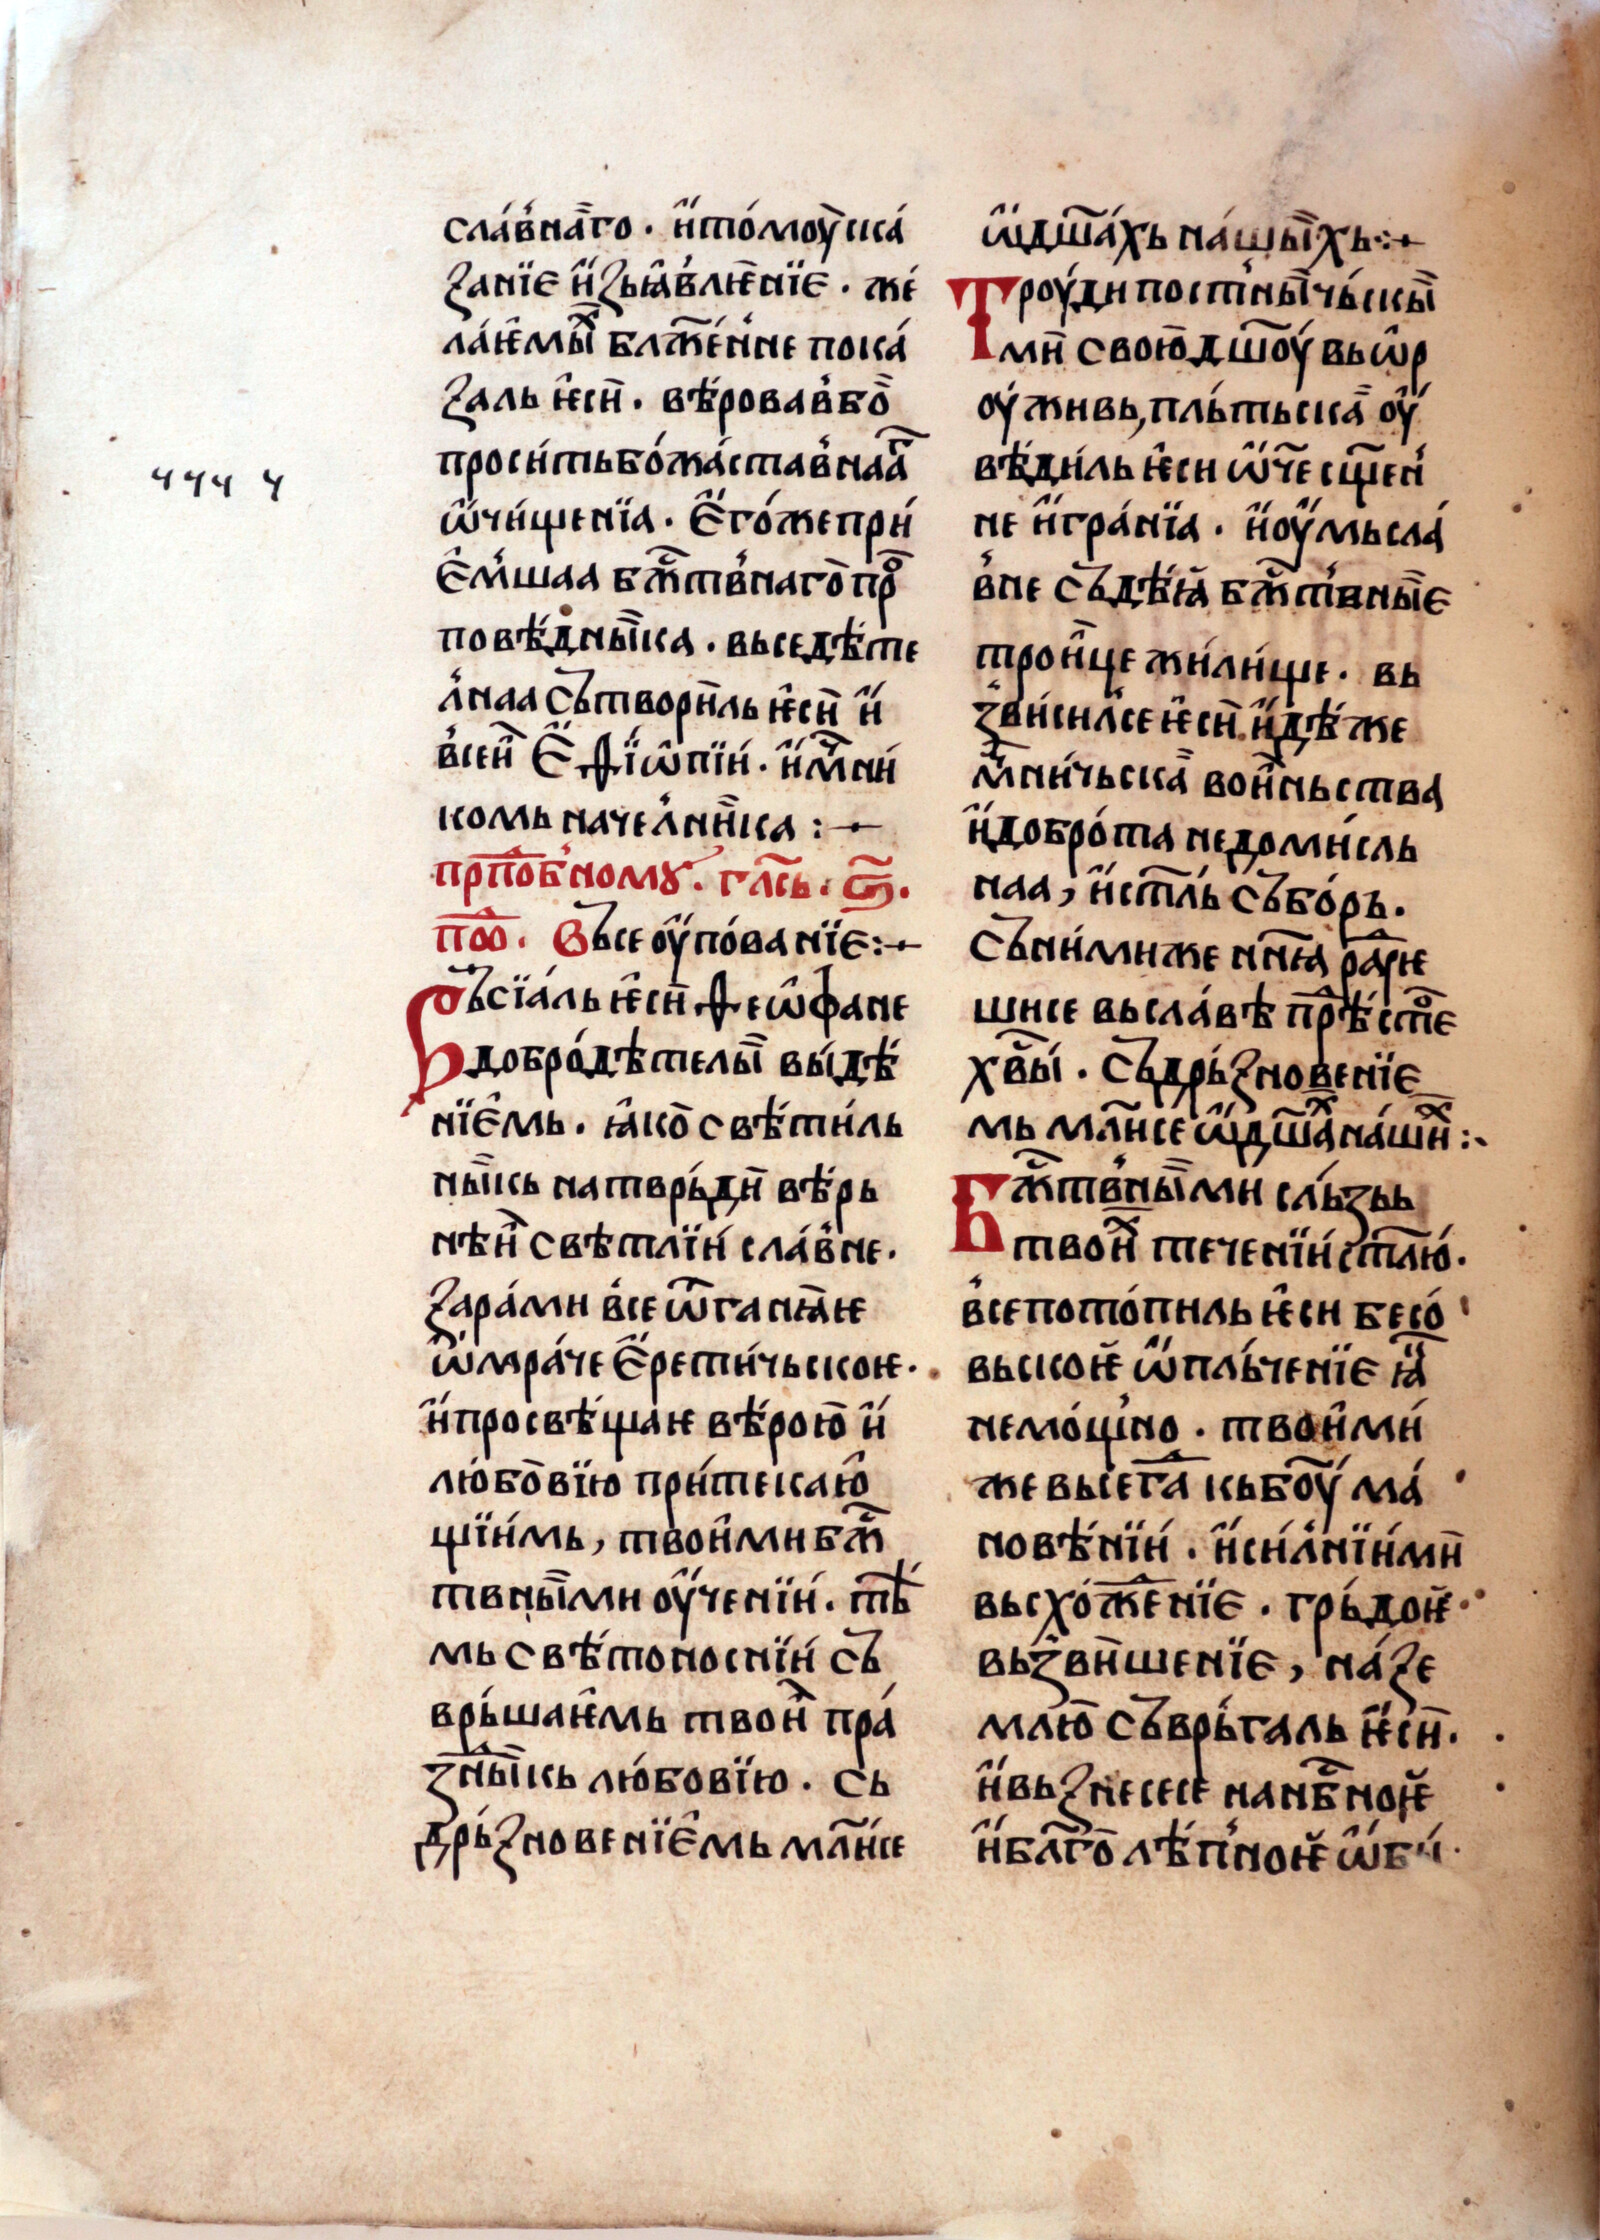 сла́внаго · и҆томоу̀ска́
ꙁанїе и҆ꙁьꙗвлѥнїе · же
ла́ѥмы́ х блж҃е́нне пока́
ꙁаль ѥси̏ · вѣ́ровав бо
проси́ть бо́жаставнаа
ѡ҆чи́щенїа · Ег҆о́же при
е҆́мшаа бж҃твнаго про
повѣ́дныка · вьседѣ́те
лнаа сътвори̏ль ѥси̏ и҆
всеи̏ Еѳїѡпїи · и҆мч҃ни
комь начелни̏ка :~
прпⷣобному · глⷭсь · ѕ҃ ·
поⷣ · Въсе оу҆пова́нїе :~
Въсїа́ль ѥси̏ ѳеѡ́фане
добро́дѣтелы̏ вы́дѣ
нїе҆мь · ꙗко свѣти́ль
ны̏кь на тврь́ди̏ вѣ́рь
нѣи̏ свѣтлїи́ сла́вне ·
ꙁара́ми все ѿганꙗѥ
ѡ҆мра́че Ерети́чьскоѥ ·
и҆просвѣщаѥ вѣ́рою и҆
лю́бовїю при́текаю
щїи́мь, твои҆ми бжⷭ
твны̏ми оу҆ченїи́ · тѣ́
мь свѣ́тоноснїи́ съ
врьшаѥ҆мь твои̏ пра́
ꙁⷣны̏кь лю́бовїю · сь
дрь́ꙁновенїе҆мь мл҃и́се
ѡ҆дш҃а́хь на́шы̏хь :~
Троу́ди постны̏чь́скы̏
ми̏ свою дш҃оу́ вьѡ҆р
оу́живь, пль́тьска оу҆
вѣ́ди́ль ѥси ѡ҆ч҃е сщ҃ен
не и҆гра́нїа · и҆оу҆мь сла́
вне съдѣꙗ бжⷭтвны̏е
трои́це жи́ли́ще · вь
ꙁви́силсе ѥси̏ и҆дѣ́же
мч҃ни́чьска вои̏ньства
и҆добро́та недоми́сль
наа, и҆ст҃ль събо́рь ·
съни́миже нн҃ꙗ раⷣуѥ
шисе вьсла́вѣ прѣⷭ҇́стⷪе
хв҃ы́ · съдрь́ꙁновенїе
мь мл҃и́се ѡ҆дш҃а х на́ши̏ х :~
Бжⷭтвны̏ми сль́ꙁьь
твои̏ х теченїи́ ст҃лю́ ·
все пото́пиль ѥси бесо́
вьскоѥ ѡ҆пль́ченїе ꙗ
немо́щно · твои҆ми́
же вьсегⷣа кьбо҃у́ ма́
новѣ́нїи́ · и҆си́лнїи́ми̏
вьсхо́жⷣенїе · грь́доѥ
вьꙁви̏шенїе, на́ꙁе
млю̏ съврь́галь ѥ҆си̏ ·
и҆вьꙁнесесе нанбⷭноѥ
и҆блг҃о лѣ́пноѥ ѡ҆би́